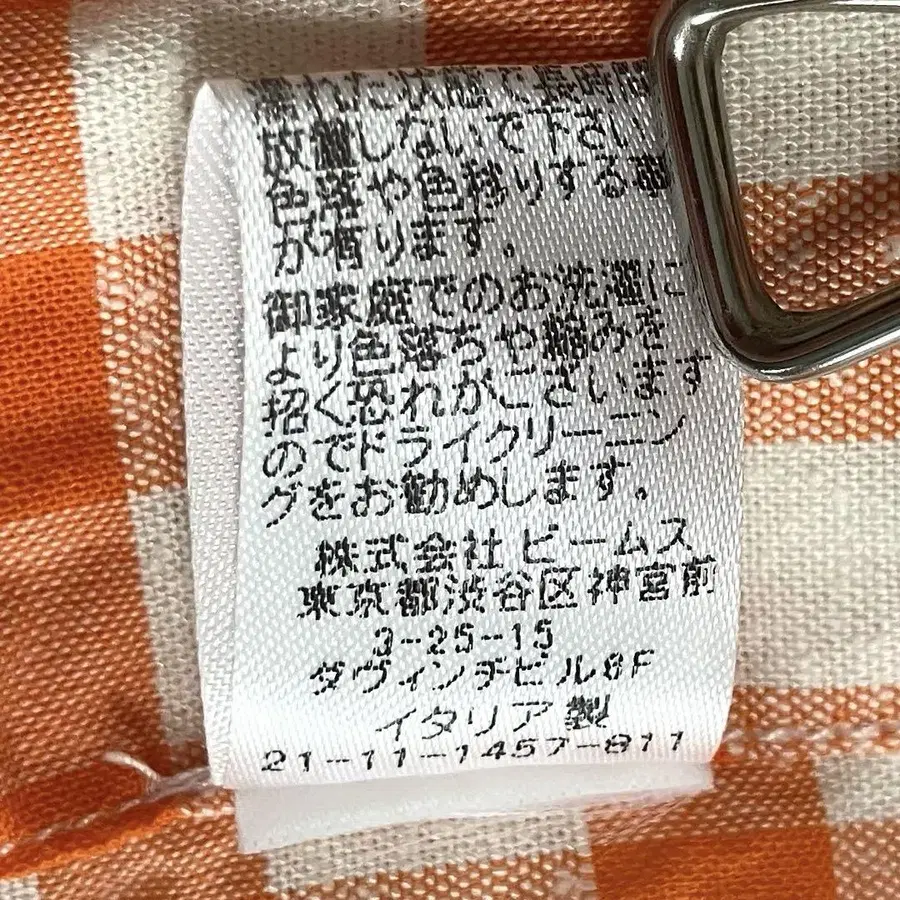 濡れた状態で長時間
放置しないで下さい
色落や色移りする事
が有ります。
御家庭でのお洗濯に
より色落ちや縮みを
招く恐れがございます
のでドライクリーニン
グをお勧めします。
株式会社 ビームス
東京都渋谷区神宮前
3-25-15
ダヴィンチビル8F
イタリア製
21-11-1457-811